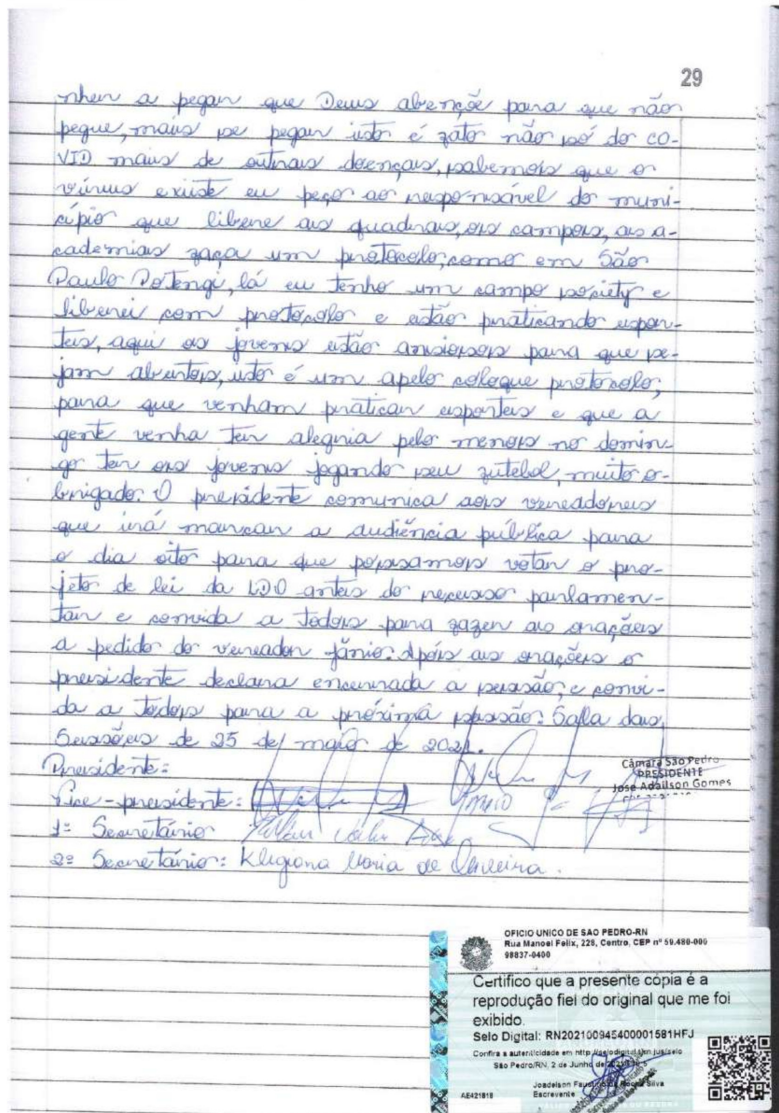 29
nhen a pegar que Deus abençõe para que não
pegue, mais se pegar isto é fato não só do co-
VID mais de outras doenças, sabemos que o
vírus existe eu peço ao responsável do muni-
cípio que libere as quadras, os campos, as a-
cademias faça um protocolo, como em São
Paulo Potengi, lá eu tenho um campo society e
liberei com protocolo e estão praticando espor-
tes, aqui os jovens estão ansiosos para que se-
jam abertos, isto é um apelo coloque protocolo,
para que venham praticar esportes e que a
gente venha ter alegria pelo menos no domin
go ter os jovens jogando seu futebol, muito o-
brigado. O presidente comunica aos vereadores
que irá marcar a audiência pública para
o dia oito para que possamos votar o pro-
jeto de lei da LDO antes do recesso parlamen-
tar e convida a todos para fazer as orações
a pedido do vereador Jânio. Após as orações o
presidente declara encerrada a sessão, e convi-
da a todos para a próxima sessão. Salla das
Sessões de 25 de maio de 2021.
Presidente:
Câmara São Pedro
PRESIDENTE
José Adailson Gomes
Vice-presidente:
1º Secretário
2º Secretário: Kligiana Maria de Oliveira.
OFICIO UNICO DE SAO PEDRO-RN
Rua Manoel Felix, 228, Centro, CEP nº 59.480-000
98837-0400
Certifico que a presente cópia é a
reprodução fiel do original que me foi
exibido.
Selo Digital: RN202100945400001581HFJ
Confira a autenticidade em http://selodigital.tjrn.jus/selo
São Pedro/RN, 2 de Junho de
Joadelson Faustino da Rocha Silva
Escrevente
AE421818